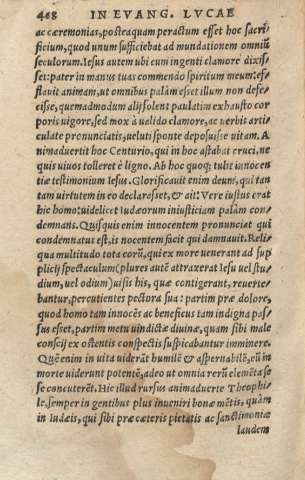 468 IN EVANG. LVCAE
ac ceremonias, postea quam peractum esset hoc sacri-
ficium, quod unum sufficiebat ad mundationem omniũ
seculorum. Iesus autem ubi cum ingenti clamore dixis-
set: pater in manus tuas commendo spiritum meum: ef-
flauit animam, ut omnibus palàm esset illum non defe-
cisse, quemadmodum alij solent paulatim exhausto cor
poris uigore, sed mox à ualido clamore, ac uerbis arti-
culate pronunciatis, ueluti sponte deposuisse uitam. A
nimaduertit hoc Centurio, qui in hoc astabat cruci, ne
quis uiuos tolleret è ligno. Ab hoc quoq; tulit innocen
tiæ testimonium Iesus. Glorificauit enim deum, qui tan
tam uirtutem in eo declarasset, & ait: Vere iustus erat
hic homo: uidelicet Iudæorum iniusticiam palàm con-
demnans. Quisquis enim innocentem pronunciat qui
condemnatus est, is nocentem facit qui damnauit. Reli-
qua multitudo tota corũ, qui ex more uenerant ad sup
plicij spectaculum (plures autē attraxerat Iesu uel stu-
dium, uel odium) uisis his, quæ contigerant, reuerte-
bantur, percutientes pectora sua: partim præ dolore,
quod homo tam innocẽs ac beneficus tam indigna pas-
sus esset, partim metu uindictæ diuinæ, quam sibi male
conscij ex ostentis conspectis suspicabantur imminere.
Quē enim in uita uiderāt humilē & aspernabilē, eũ in
morte uiderunt potentē, adeo ut omnia rerũ elemēta se
se concuterēt. Hic illud rursus animaduerte Theophi-
le, semper in gentibus plus inueniri bonæ mētis, quàm
in Iudæis, qui sibi præ cæteris pietatis ac sanctimoniæ
laudem